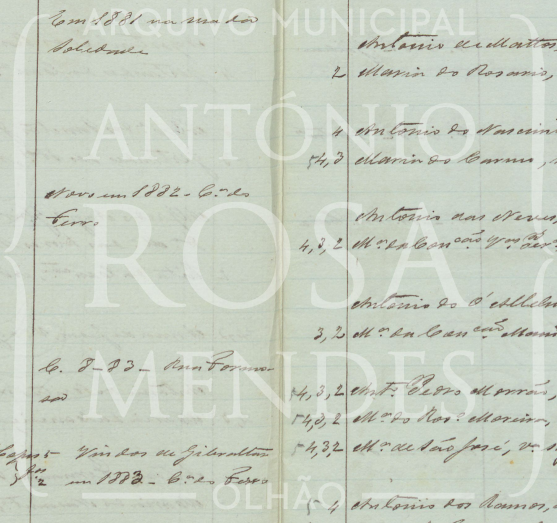 ARQUIVO MUNICIPAL
ANTÓNIO
ROSA
MENDES
OLHÃO
Em 1881 na rua da
Soledade
Novo em 1882 - C.º do
Ferro
C. 8-83 - Rua Formo-
sa
Vindos de Gibraltar
em 1883 - C.º do Ferro
Antonio de Mattos,
2 Maria do Rosario,
4 Antonio do Nascim
54,3 Maria do Carmo,
Antonio das Neves,
4,3,2 M.ª da Con.cão
Antonio do
3,2 M.ª da Con.cão
54,3,2 Ant.º Pedro Morrão,
54,3,2 M.ª do Ros.º Moreira,
54,32 M.ª de São José, v.ª
5 4 Antonio dos Ramos,